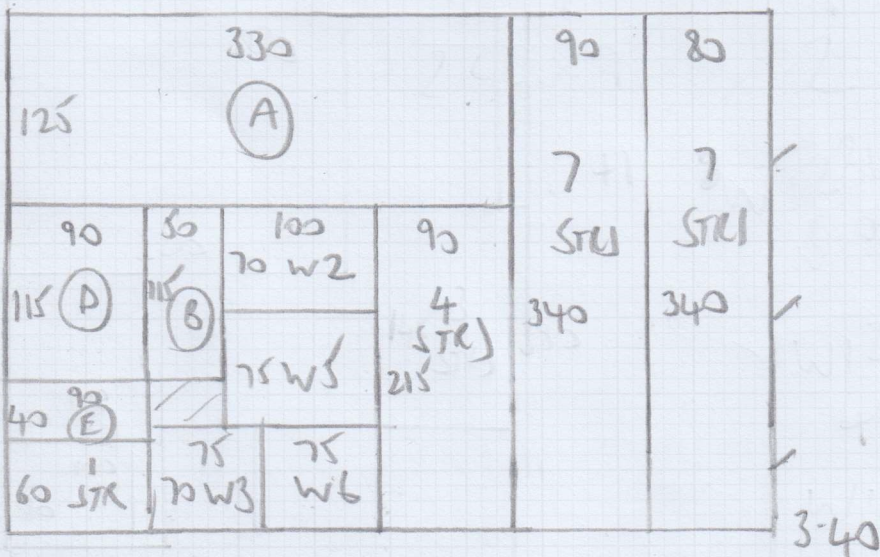 330
125
A
90
7
STRS
340
80
7
STRS
340
90
115 D
50
115
B
100
70 W2
75 W5
90
4
STRS
215
90
40 E
1
60 STR
75
70 W3
75
W6
3-40